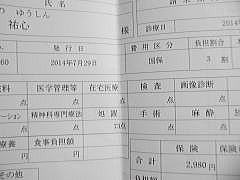 氏 名
の ゆうしん
祐心 様
診療日
2014
発 行 日 費 用 区 分 負担割合
60 2014年7月29日 国保 3 割
料 医学管理等 在宅医療 検 査 画像診断
点 点 点 点 点
ーション 精神科専門療法 処 置 手 術 麻 酔
点 点 73点 点 点
療養 食事負担額 保 険 保険
円 円 合 計 2,980 円
その他 負担額